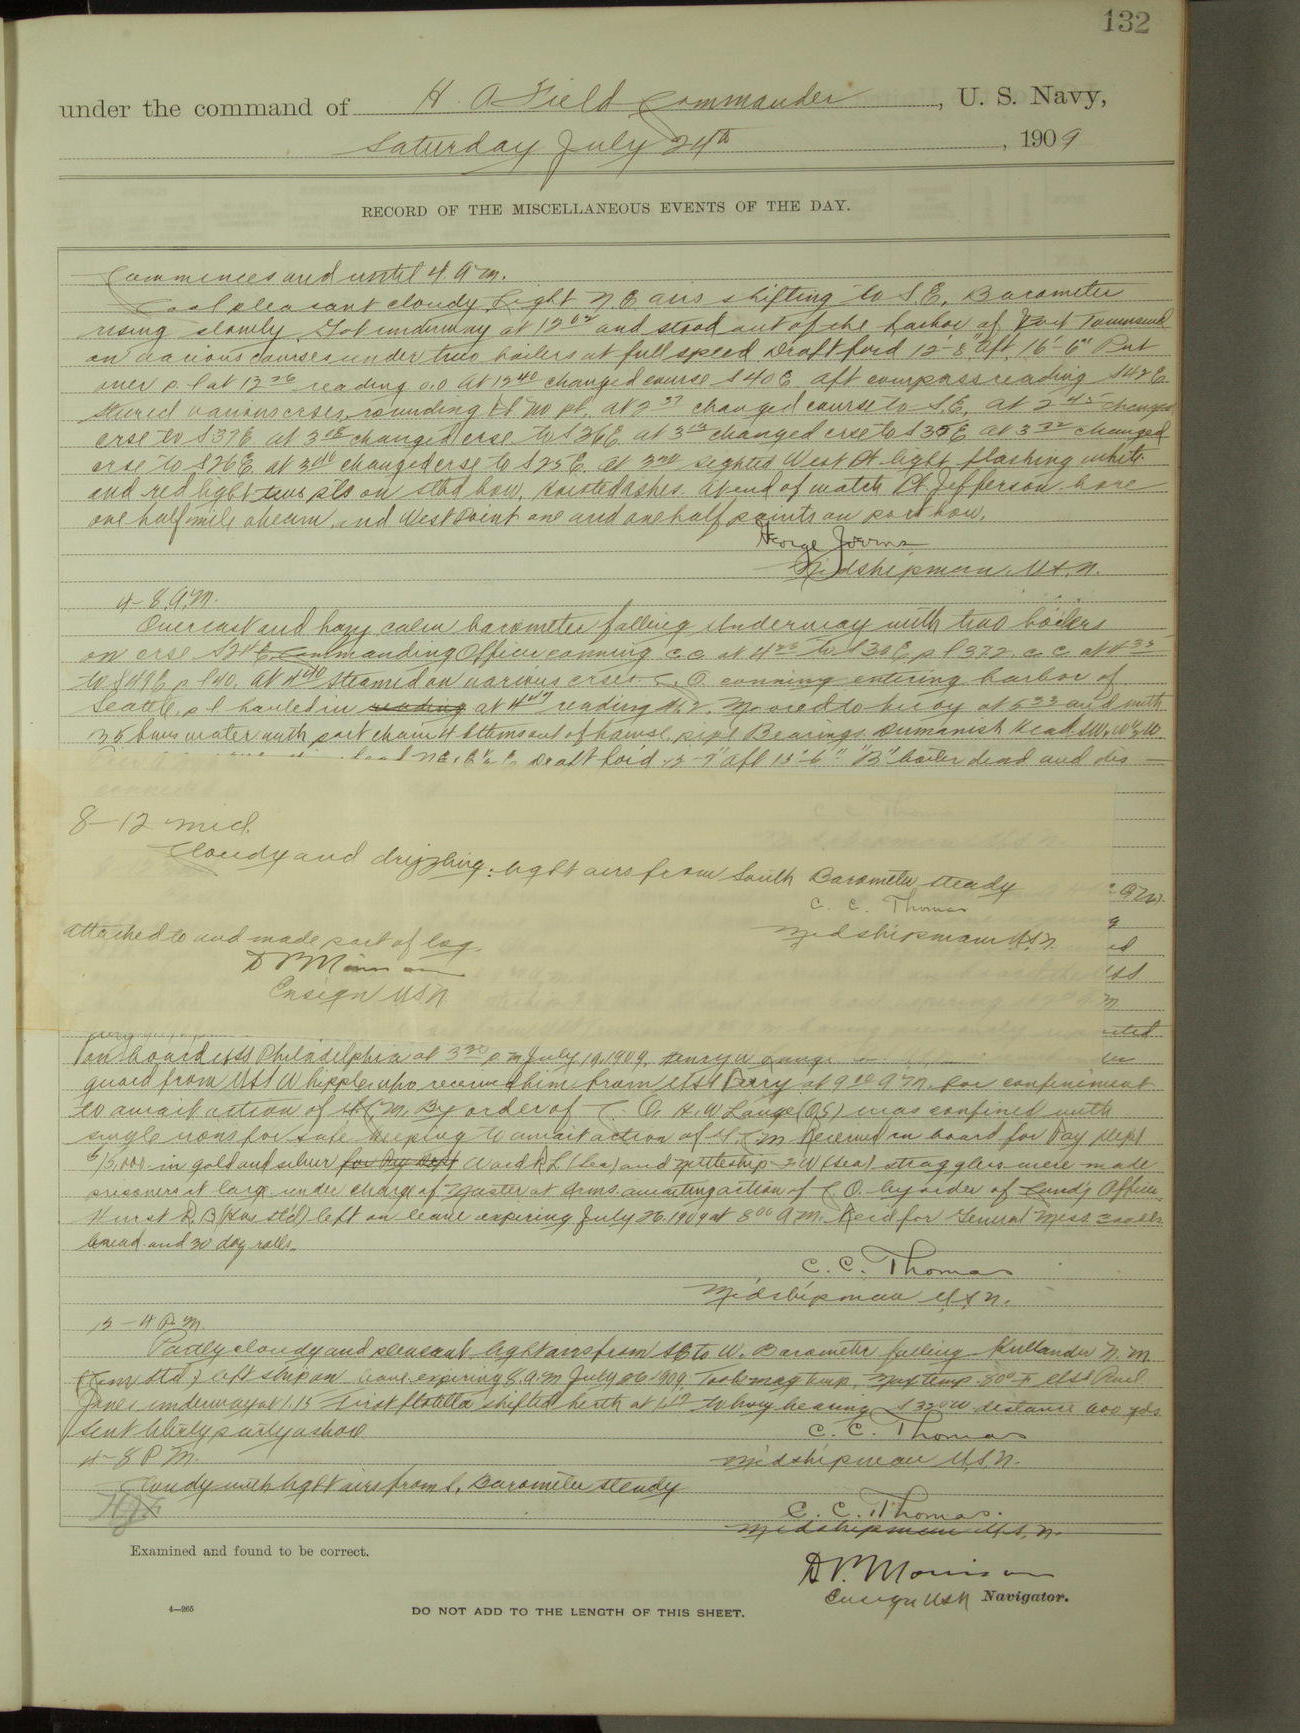 132
under the command of H. A. Field Commander, U. S. Navy,
Saturday July 24th, 1909
RECORD OF THE MISCELLANEOUS EVENTS OF THE DAY.
Commences and until 4 a.m.
Cool pleasant cloudy Light N.E. airs shifting to S.E. Barometer
rising slowly. Got underway at 12 02 and stood out of the harbor of Port Townsend
on various courses under two boilers at full speed Draft for'd 12'-8" aft 16'-6" Put
over p.l. at 12 26 reading 0.0 At 12 40 changed course S40E aft compass reading S42E
Steered various crses, rounding pt. at 2 37 changed course to S.E. at 2 45 changed
crse to S37E at 3 05 changed crse to S26E at 3 changed crse to S35E at 3 32 changed
crse to S26E at 3 40 changed crse to S25E. at 3 50 sighted West Pt light flashing white
and red light two pts on stbd bow. Hoisted ashes. At end of watch Pt. Jefferson bore
one half mile abeam, and West Point one and one half points on port bow.
George Joerns
Midshipman U.S.N.
4-8 A.M.
Overcast and hazy calm barometer falling Underway with two boilers
on crse Commanding Officer conning c.c. at 4 25 to S30E p.l. 37.2. c.c. at 4 35
to S49E p.l. 40. At 4 40 steamed on various crses C.O. conning entering harbor of
Seattle, p.l. hauled in reading at 4 47 reading Moored to buoy at 5 33 and with
water with port chain out of hawse pipe Bearings Duwamish Head
Draft for'd aft 13'-6" "B" boiler dead and dis-
8-12 mid.
Cloudy and drizzling: light airs from South Barometer steady
C. C. Thomas
Midshipman U.S.N.
attached to and made part of log.
D P Morrison
Ensign USN
on board USS Philadelphia at 3 30 p.m July 19, 1909. Henry W
guard from USS Whipple who received him from USS Perry at 9 00 A.M. for confinement
to await action of By order of C.O. H. W Lange (OS) was confined with
single irons for safe keeping to await action of Received on board for Pay Dept
$15,000 in gold and silver for Pay Dept Ward R L (Sea) and Nettleship (Sea) stragglers were made
prisoners at large under charge of Master at Arms awaiting action of C.O. by order of Comd'g Officer.
Hurst R. B. left on leave expiring July 26, 1909 at 8 00 A.M. Rec'd for General Mess lbs
bread and 30 doz rolls.
C. C. Thomas
Midshipman U.S.N.
12-4 P.M.
Partly cloudy and pleasant light airs from SE to W. Barometer falling Kullander N. M
left ship on leave expiring 8 A.M July 26 1909. Took mag temp. Max temp. 80° F USS Paul
Jones underway at 1.15 First flotilla shifted berth at 1.17 to buoy bearing distance 600 yds.
Sent liberty party ashore
C. C. Thomas
Midshipman U.S.N.
4-8 P.M.
Cloudy with light airs from S. Barometer steady
C. C. Thomas.
Midshipman U.S.N.
Examined and found to be correct.
D P Morrison
Ensign USN Navigator.
4—265
DO NOT ADD TO THE LENGTH OF THIS SHEET.